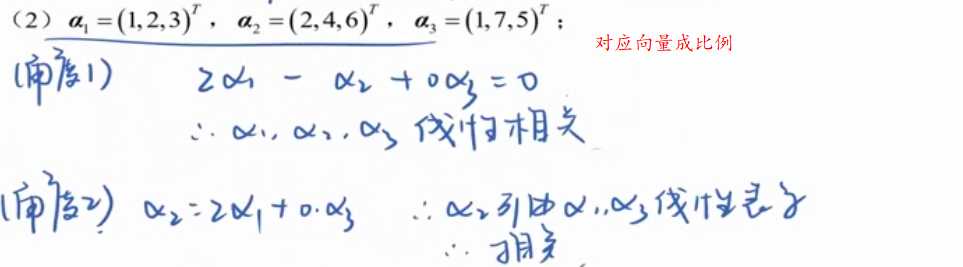 （2）α₁=(1,2,3)ᵀ，α₂=(2,4,6)ᵀ，α₃=(1,7,5)ᵀ；
对应向量成比例
(角度1) 2α₁ - α₂ + 0α₃ = 0
∴ α₁, α₂, α₃ 线性相关
(角度2) α₂=2α₁+0·α₃ ∴ α₂可由α₁,α₃线性表示
∴ 相关